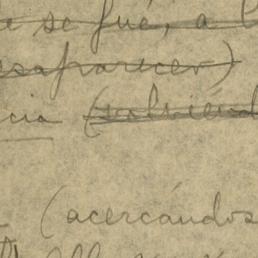 e se fué, a l
esaparecer)
cia (volviénd
(acercándos